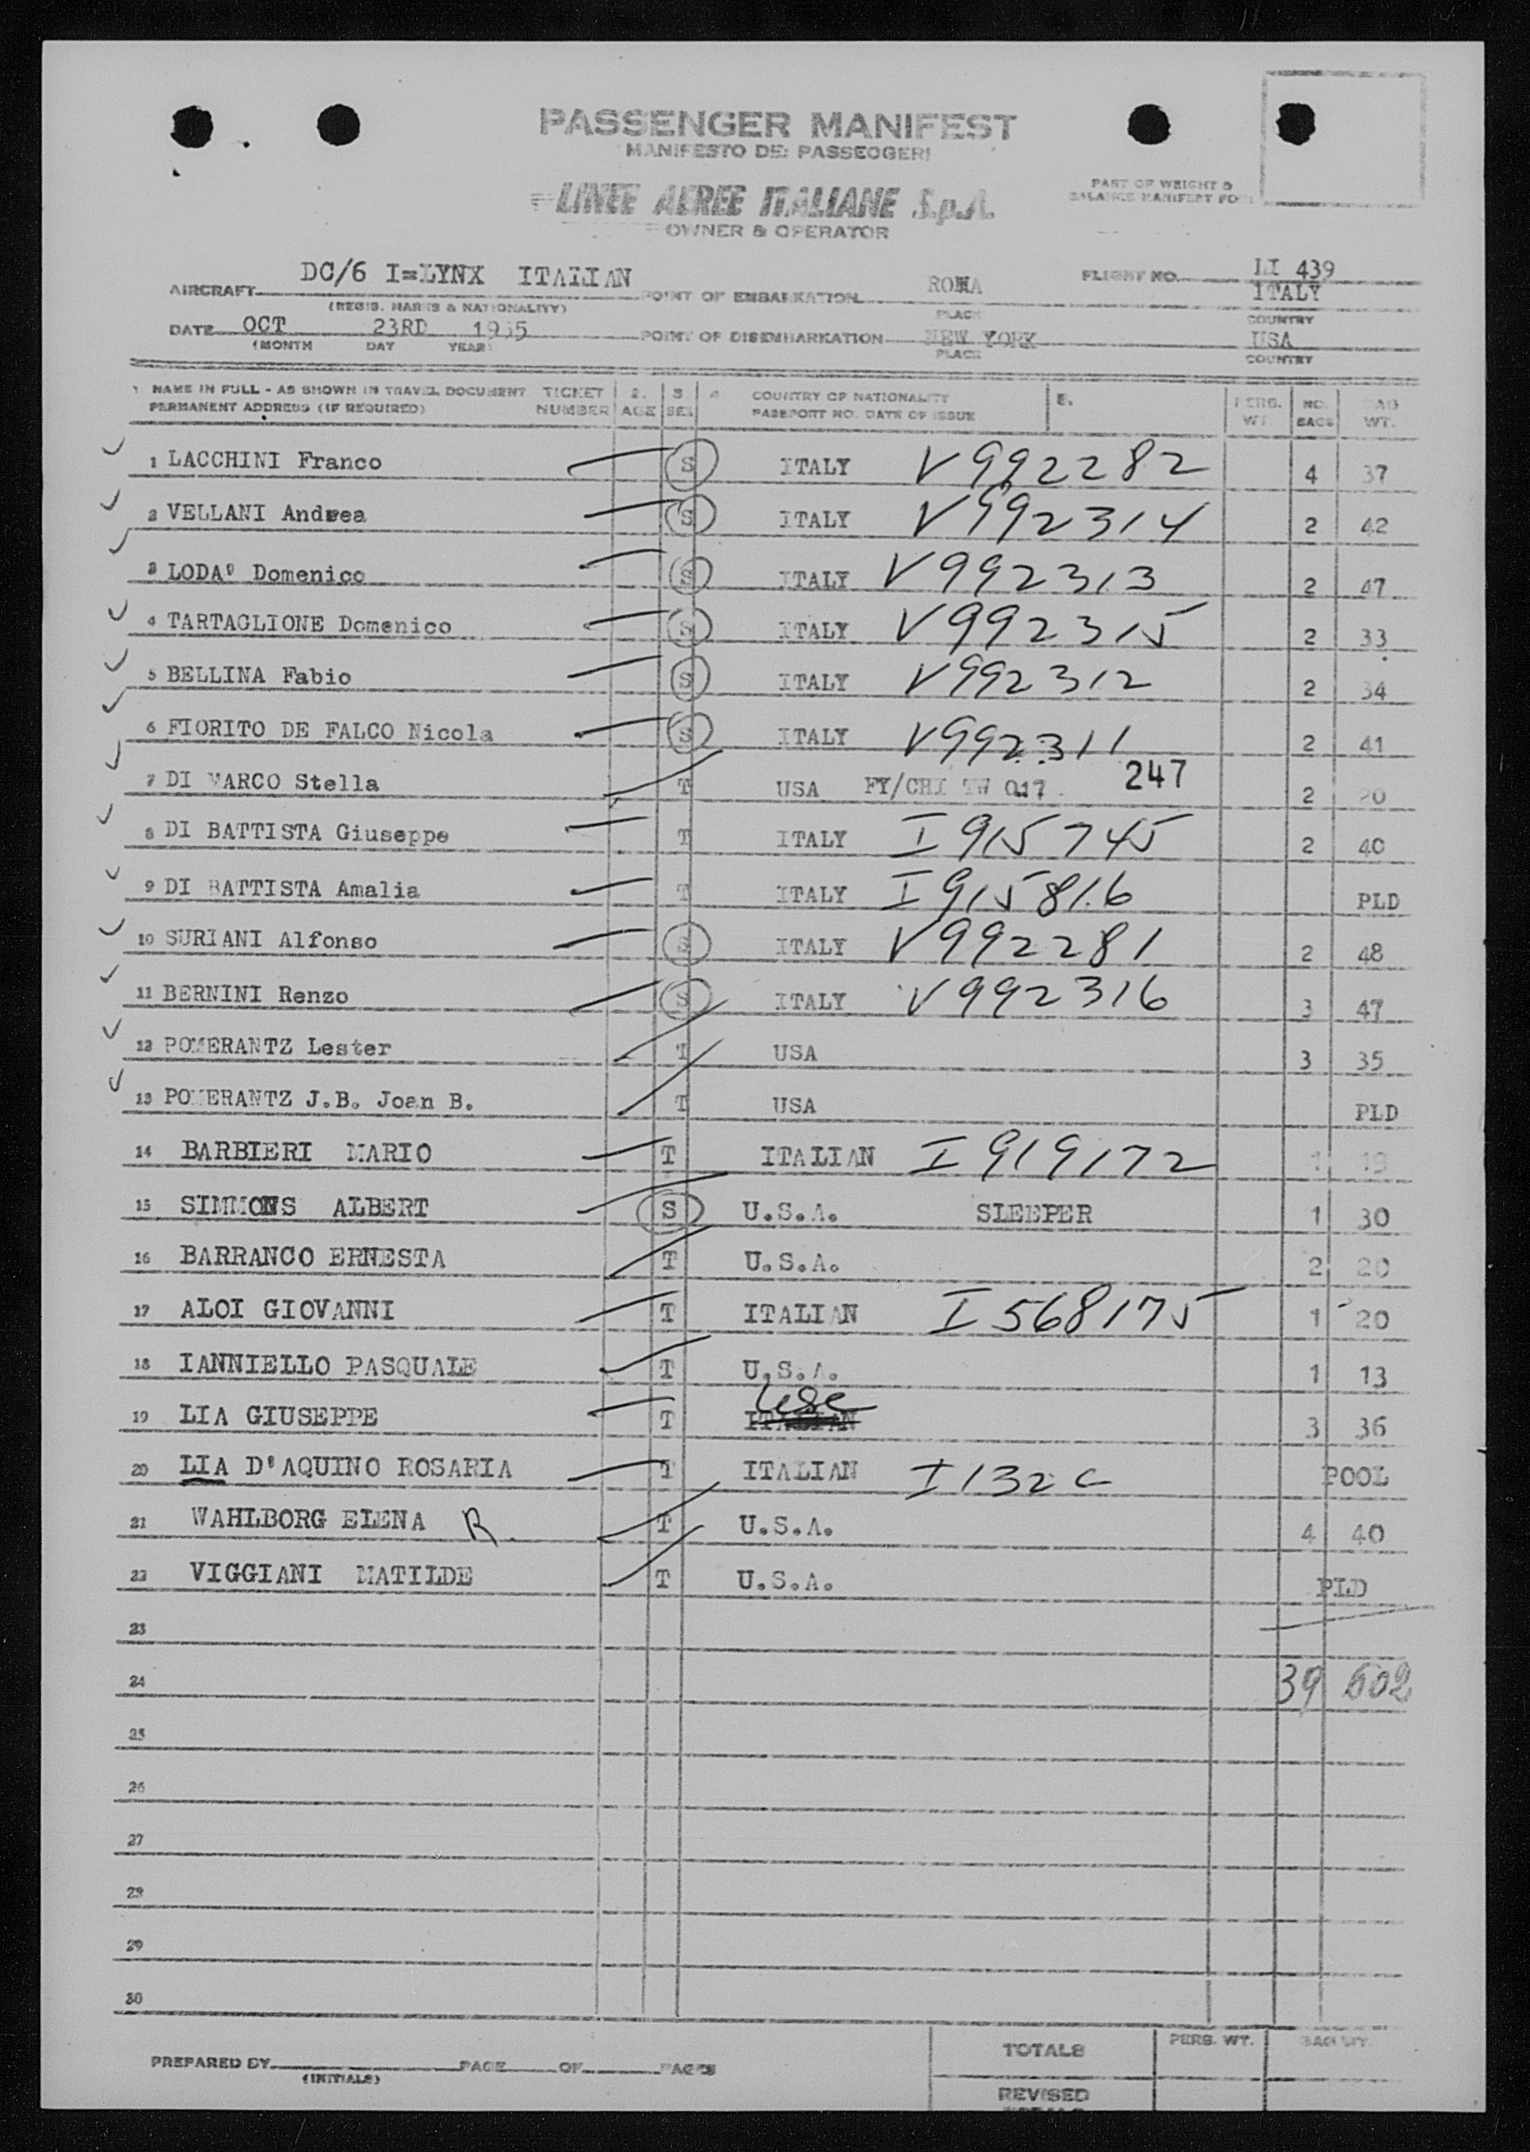 PASSENGER MANIFEST
MANIFESTO DEI PASSEGGERI
LINEE AEREE ITALIANE S.p.A.
OWNER & OPERATOR
PART OF WEIGHT &
BALANCE MANIFEST FOR
AIRCRAFT DC/6 I=LYNX ITALIAN POINT OF EMBARKATION ROMA FLIGHT NO. LI 439
(REGIS. MARKS & NATIONALITY) PLACE ITALY COUNTRY
DATE OCT 23RD 1955 POINT OF DISEMBARKATION NEW YORK USA
(MONTH DAY YEAR) PLACE COUNTRY
1 NAME IN FULL - AS SHOWN IN TRAVEL DOCUMENT TICKET 2. 3 4 COUNTRY OF NATIONALITY 5. PERS. NO. BAG
PERMANENT ADDRESS (IF REQUIRED) NUMBER AGE SEX PASSPORT NO. DATE OF ISSUE WT BAGS WT.
1 LACCHINI Franco S ITALY V992282 4 37
2 VELLANI Andrea S ITALY V992314 2 42
3 LODA' Domenico S ITALY V992313 2 47
4 TARTAGLIONE Domenico S ITALY V992315 2 33
5 BELLINA Fabio S ITALY V992312 2 34
6 FIORITO DE FALCO Nicola S ITALY V992311 2 41
7 DI MARCO Stella T USA FY/CHI TW 017 247 2 20
8 DI BATTISTA Giuseppe T ITALY I915745 2 40
9 DI BATTISTA Amalia T ITALY I915816 PLD
10 SURIANI Alfonso S ITALY V992281 2 48
11 BERNINI Renzo S ITALY V992316 3 47
12 POMERANTZ Lester T USA 3 35
13 POMERANTZ J.B. Joan B. T USA PLD
14 BARBIERI MARIO T ITALIAN I919172 1 19
15 SIMMONS ALBERT S U.S.A. SLEEPER 1 30
16 BARRANCO ERNESTA T U.S.A. 2 20
17 ALOI GIOVANNI T ITALIAN I568175 1 20
18 IANNIELLO PASQUALE T U.S.A. 1 13
19 LIA GIUSEPPE T ITALIAN 3 36
20 LIA D'AQUINO ROSARIA T ITALIAN I132C POOL
21 WAHLBORG ELENA R. T U.S.A. 4 40
22 VIGGIANI MATILDE T U.S.A. PLD
23
24 39 602
25
26
27
28
29
30
PREPARED BY PAGE OF PAGES
(INITIALS)
TOTALS PERS. WT. BAG WT.
REVISED